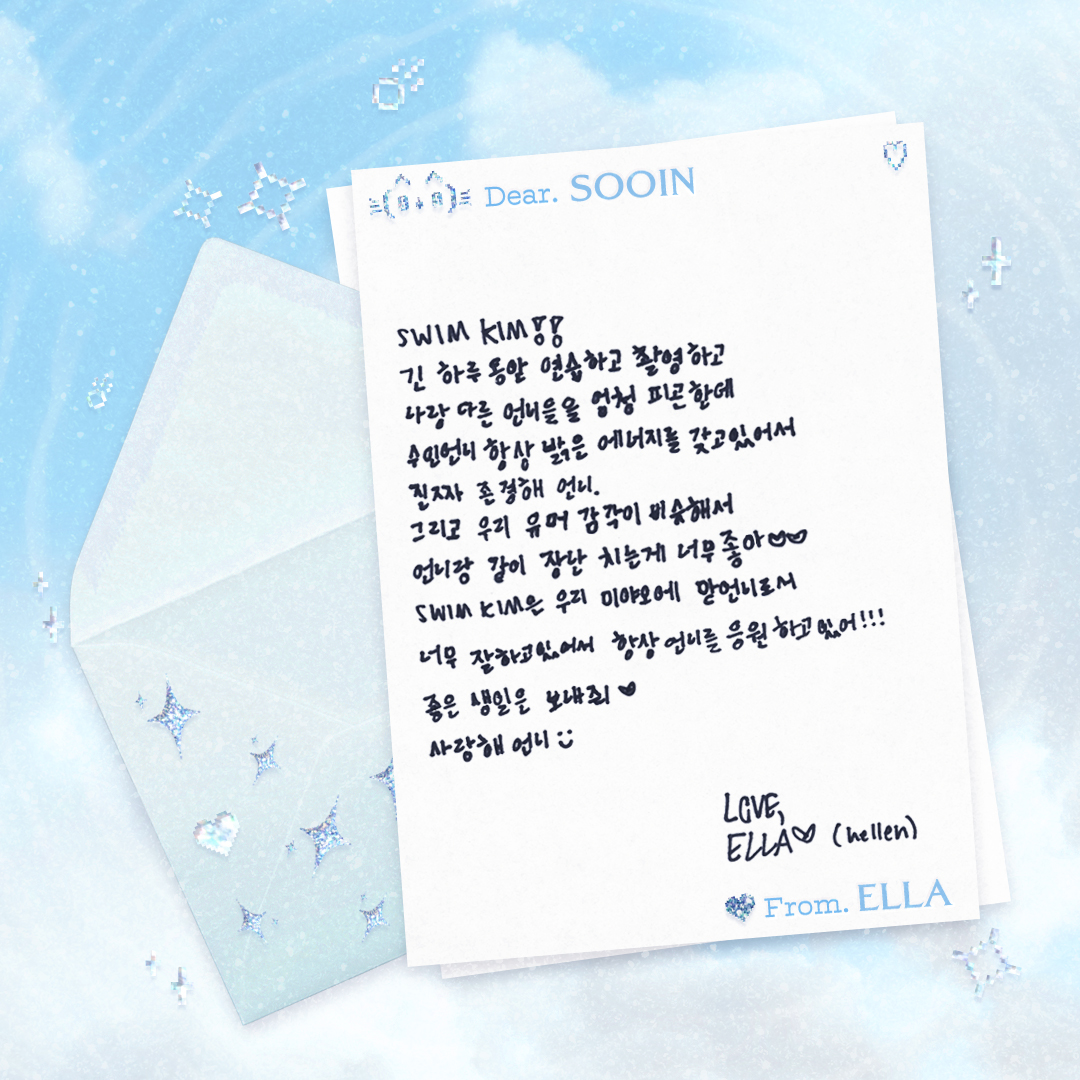 Dear. SOOIN
SWIM KIM!!
긴 하루 동안 연습하고 촬영하고
나랑 다른 언니들을 엄청 피곤한데
수인언니 항상 밝은 에너지를 갖고있어서
진짜 존경해 언니.
그리고 우리 유머 감각이 비슷해서
언니랑 같이 장난 치는게 너무 좋아♡♡
SWIM KIM은 우리 미야오에 맏언니로서
너무 잘하고있어서 항상 언니를 응원 하고있어!!!
좋은 생일은 보내줘♡
사랑해 언니 :)
LOVE,
ELLA♡ (hellen)
From. ELLA